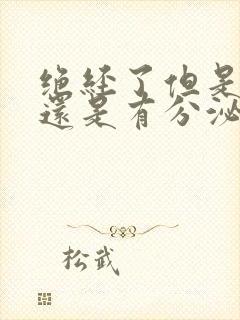 绝经了但是
還是有分泌
松武